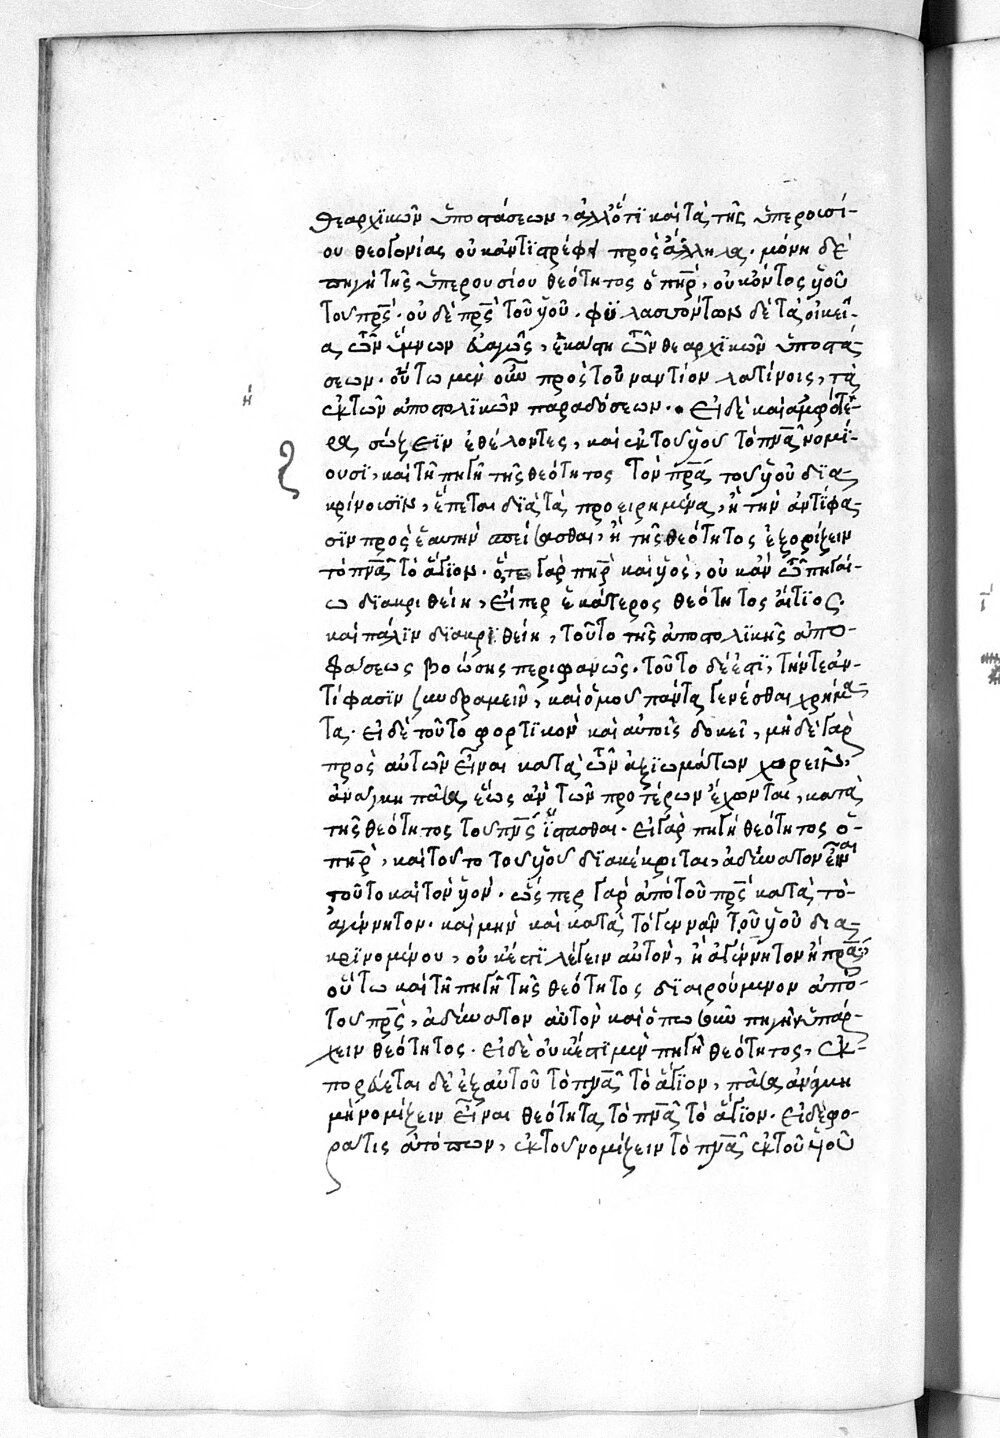 θεαρχϊκῶν ὑποστάσεων, ἀλλ' ὅτϊ καὶ τὰ τῆς ὑπερουσί-
ου θεογονίας οὐκ ἀντϊστρέφει πρὸς ἄλληλα. μόνη δὲ
πηγὴ τῆς ὑπερουσίου θεότητος ὁ πηρ̅, οὐκ ὄντος υ̅ου
τοῦ πρ̅ς. οὐδὲ πρ̅ς τοῦ υ̅οῦ. φϋλασσόντων δὲ τὰ οἰκεῖ-
α τῶν ὕμνων εὐαγῶς, ἑκάστη τῶν θεαρχϊκῶν ὑποστά-
σεων. οὕτω μὲν οὖν πρὸς τοὐναντίον λατίνοις, τὰ
ἐκ τῶν ἀποστολϊκῶν παραδόσεων. εἰ δὲ καὶ ἀμφότε-
ρα σώζειν ἐθέλοντες, καὶ ἐκ τοῦ υ̅οῦ τὸ πν̅α νομί-
ουσϊ, καὶ τῇ πηγῇ τῆς θεότητος τὸν πρ̅α τοῦ υ̅οῦ δϊα-
κρίνουσϊν, ἕπεται δϊὰ τὰ προειρημένα, ἢ τὴν ἀντίφα-
σϊν πρὸς ἑαυτὴν σπείσασθαι, ἢ τῆς θεότητος ἐξορίζειν
τὸ πν̅α τὸ ἅγϊον. ὅτε γὰρ πηρ̅ καὶ υ̅ος, οὐκ ἂν τῷ πηγαί-
ω δϊακριθείη, εἴπερ ἑκάτερος θεότητος αἴτϊος.
καὶ πάλϊν δϊακρϊθείη, τοῦτο τῆς ἀποστολϊκῆς ἀπο-
φάσεως βοώσης περιφανῶς. τοῦτο δέ ἐστϊ, τήν τε ἀν-
τίφασϊν συνδραμεῖν, καὶ ὁμοῦ πάντα γενέσθαι χρήμα-
τα. εἰ δὲ τοῦτο φορτϊκὸν καὶ αὐτοῖς δοκεῖ, μηδὲ γὰρ
πρὸς αὐτῶν εἶναι κατὰ τῶν ἀξϊωμάτων χωρεῖν,
ἀνάγκη πᾶσα, ἕως ἂν τῶν προτέρων ἔχωνται, κατὰ
τῆς θεότητος τοῦ πν̅ς ἵστασθαι. εἰ γὰρ πηγὴ θεότητος ὁ
πηρ̅, καὶ τοῦτο τοῦ υ̅οῦ δϊακέκριται, ἀδύνατον εἶναι
τοῦτο καὶ τὸν υ̅ον. ὥσπερ γὰρ ἀπὸ τοῦ πρ̅ς κατὰ τὸ
ἀγέννητον. καὶ μὴν καὶ κατὰ τὸ γεννᾶν τοῦ υ̅οῦ δια-
κρϊνομένου, οὐκ ἔστϊ λέγειν αὐτὸν, ἢ ἀγέννητον ἢ πρ̅α.
οὕτω καὶ τῇ πηγῇ τῆς θεότητος δϊαιρούμενον ἀπὸ
τοῦ πρ̅ς, ἀδύνατον αὐτὸν καὶ ὁπωσοῦν πηγὴν ὑπάρ-
χειν θεότητος. εἰ δὲ οὐκ ἔστϊ μὲν πηγὴ θεότητος, ἐκ-
πορεύεται δὲ ἐξ αὐτοῦ τὸ πν̅α τὸ ἅγϊον, πᾶσα ἀνάγκη
μὴ νομίζειν εἶναι θεότητα τὸ πν̅α τὸ ἅγϊον. εἰ δὲ φο-
ρᾶτις ἀτόπων, ἐκ τοῦ νομίζειν τὸ πν̅α ἐκ τοῦ υ̅οῦ